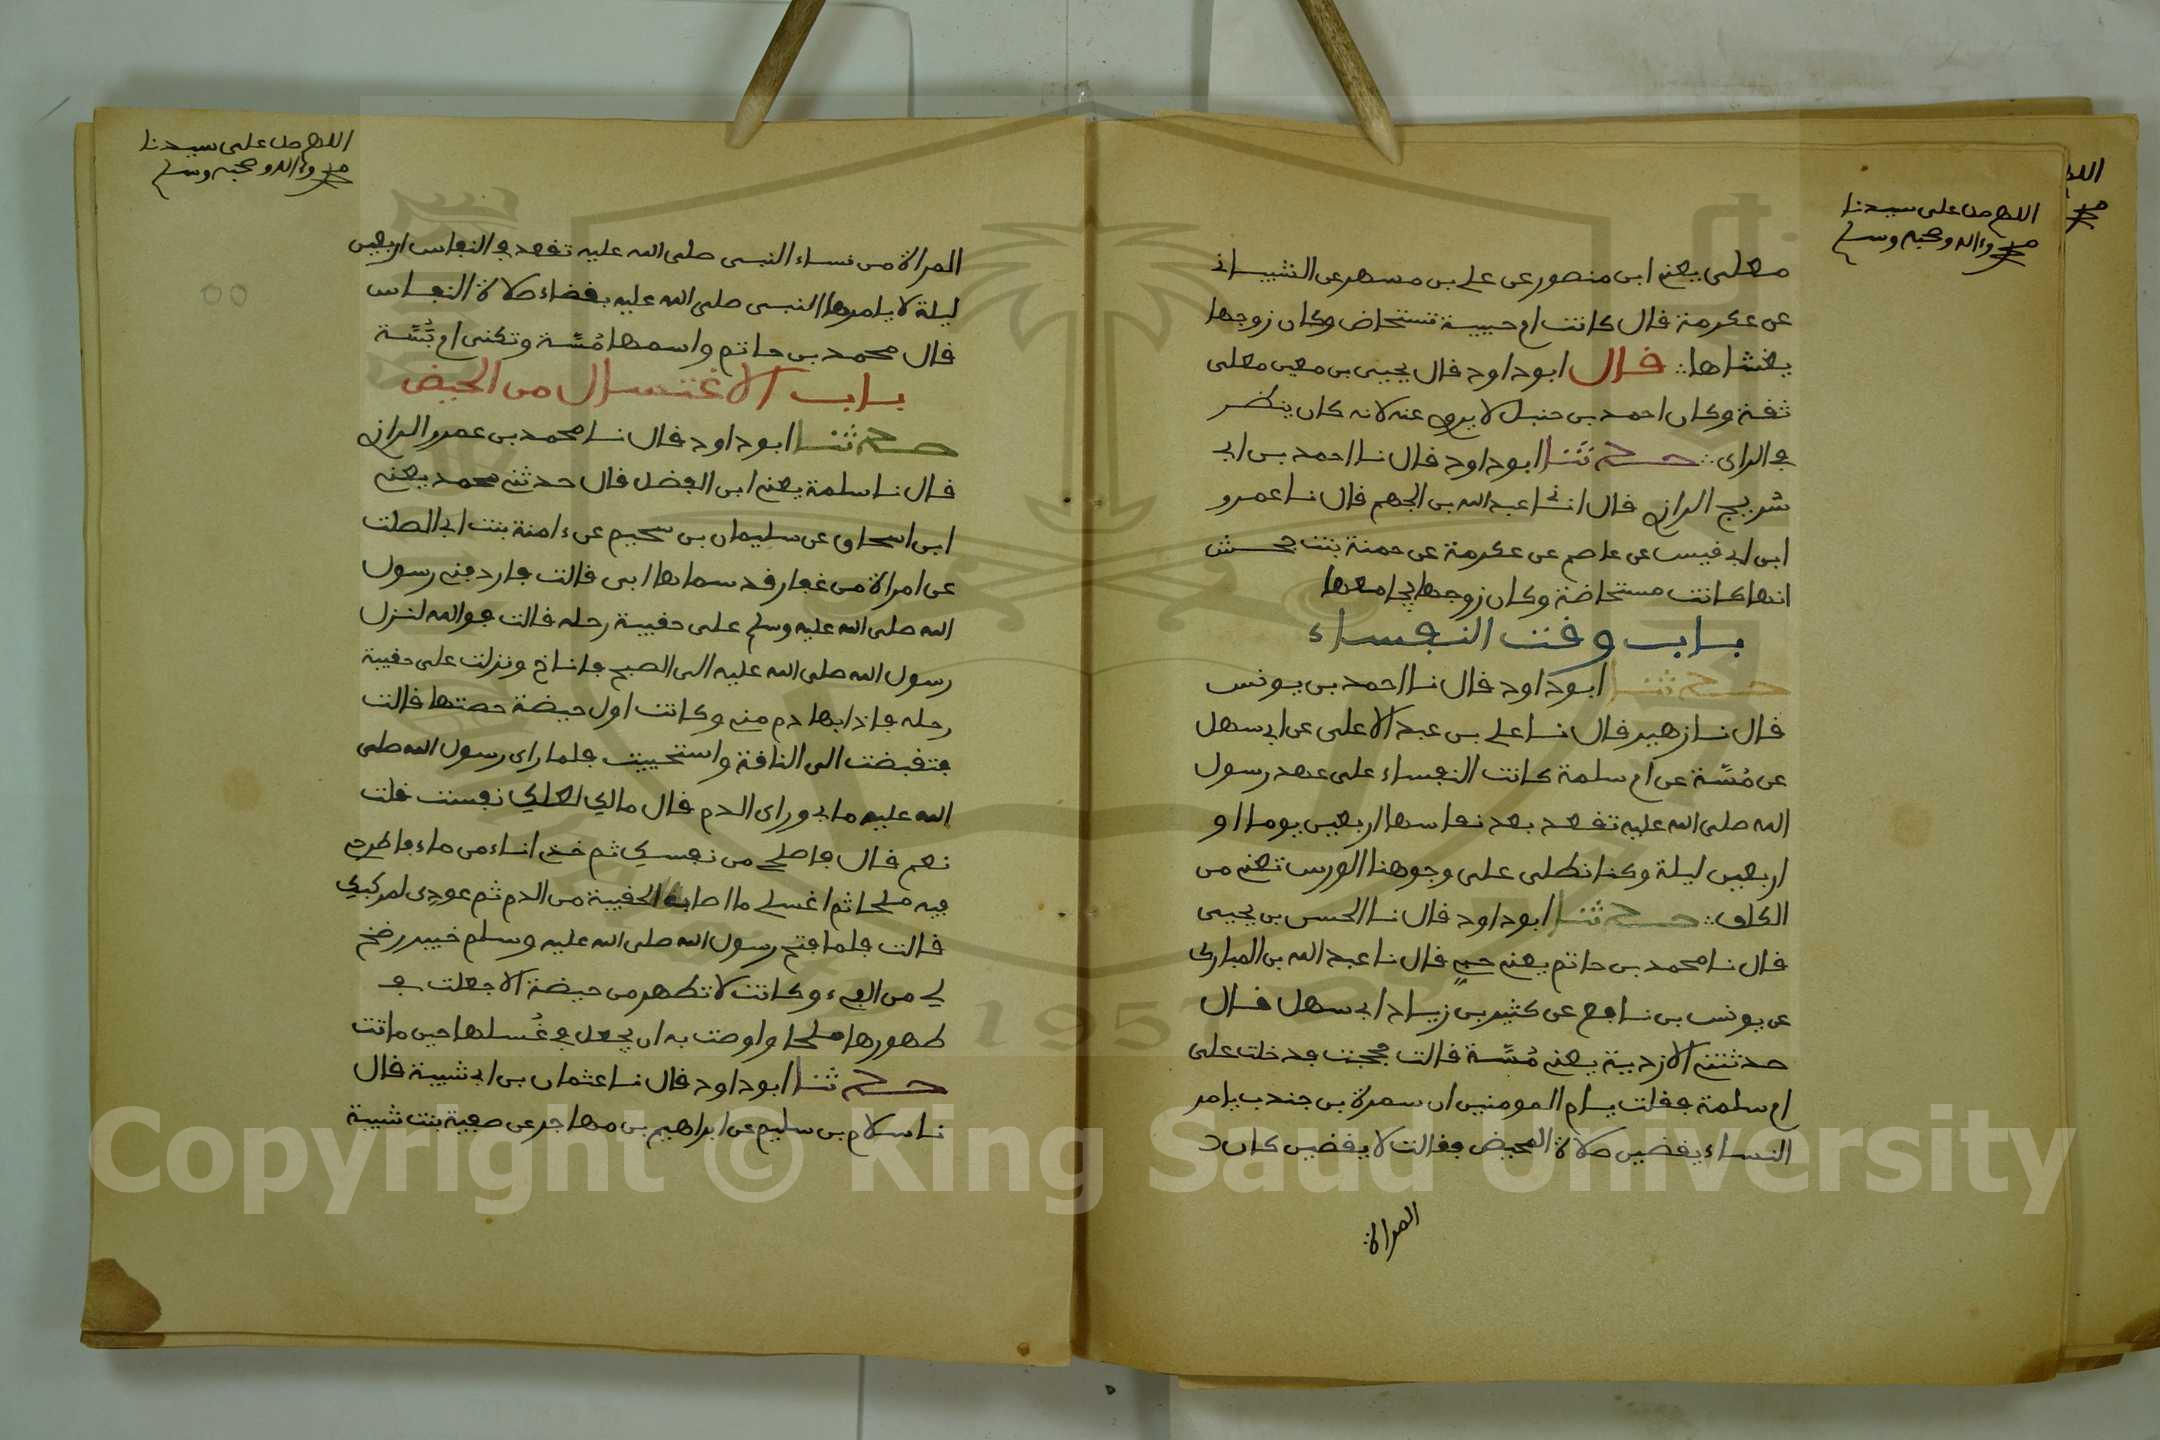 اللهم صل على سيدنا
محمد وءاله وصحبه وسلم
معلى يعني ابن منصور عن علي بن مسهر عن الشيباني
عن عكرمة قال كانت ام حبيبة تستحاض وكان زوجها
يغشاها قال ابو داود قال يحيى بن معين معلى
ثقة وكان احمد بن حنبل لا يروي عنه لانه كان ينظر
في الراى حدثنا ابو داود قال نا احمد بن ابي
سُريج الرازي قال انا عبد الله بن الجهم قال نا عمرو
ابن ابي قيس عن عاصم عن عكرمة عن حمنة بنت جحش
انها كانت مستحاضة وكان زوجها يجامعها
باب وقت النفساء
حدثنا ابو داود قال نا احمد بن يونس
قال نا زهير قال نا علي بن عبد الاعلى عن ابي سهل
عن مُسَّة عن ام سلمة كانت النفساء على عهد رسول
الله صلى الله عليه تقعد بعد نفاسها اربعين يوما او
اربعين ليلة وكنا نطلى على وجوهنا الورس تعني من
الكلف حدثنا ابو داود قال نا الحسن بن يحيى
قال نا محمد بن حاتم يعني حِبي قال نا عبد الله بن المبارك
عن يونس بن نافع عن كثير بن زياد ابي سهل قال
حدثتني الازدية يعني مُسَّة قالت حججت فدخلت على
ام سلمة فقلت يام المومنين ان سمرة بن جندب يامر
النساء يقضين صلاة المحيض فقالت لا يقضين كان
المراة
اللهم صل على سيدنا
محمد وءاله وصحبه وسلم
المراة من نساء النبي صلى الله عليه تقعد في النفاس اربعين
ليلة لا يامرها النبي صلى الله عليه بقضاء صلاة النفاس
قال محمد بن حاتم واسمها مُسَّة وتكنى ام بُسَّة
باب الاغتسال من الحيض
حدثنا ابو داود قال نا محمد بن عمرو الرازي
قال نا سلمة يعني ابن الفضل قال حدثني محمد يعني
ابن اسحاق عن سليمان بن سحيم عن ءامنة بنت ابي الصلت
عن امراة من غفار قد سماها ابي قالت فاردفني رسول
الله صلى الله عليه وسلم على حقيبة رحله قالت فوالله لنزل
رسول الله صلى الله عليه الى الصبح فاناخ ونزلت على حقيبة
رحله فاذا بها دم مني وكانت اول حيضة حضتها قالت
فتقبضت الى الناقة واستحييت فلما راى رسول الله صلى
الله عليه ما بي وراى الدم قال مالكِ لعلكِ نفست قلت
نعم قال فاصلحي من نفسكِ ثم خذي اناء من ماء فاطرحي
فيه ملحا ثم اغسلي ما اصاب الحقيبة من الدم ثم عودى لمركبكِ
قالت فلما فتح رسول الله صلى الله عليه وسلم خيبر رضخ
لي من الفيء وكانت لا تطهر من حيضة الا جعلت في
طهورها ملحا واوصت به ان يجعل في غُسلها حين ماتت
حدثنا ابو داود قال نا عثمان بن ابي شيبة قال
نا سلام بن سليم عن ابراهيم بن مهاجر عن صفية بنت شيبة
1957
Copyright © King Saud University